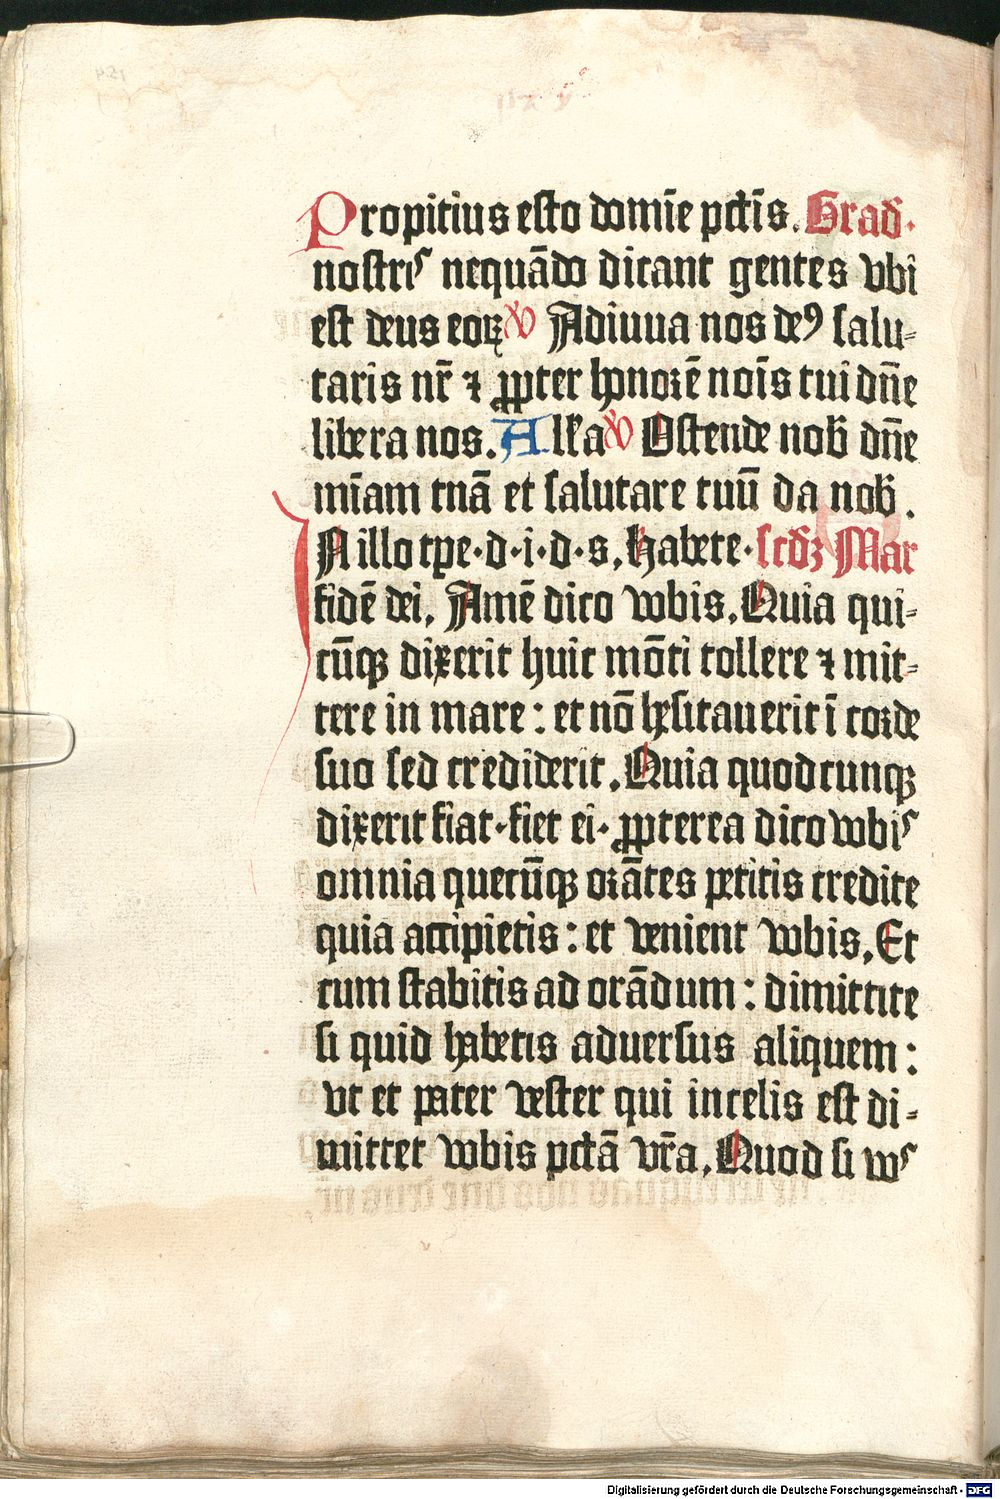 Propitius esto domīe pctīs. Grad̄.
nostris nequādo dicant gentes vbi
est deus eorꝝ ℣ Adiuua nos deꝰ salu-
taris nr̄ ⁊ ꝓpter honorē noīs tui dn̄e
libera nos. All'a ℣ Ostende nob̄ dn̄e
mīam tuā et salutare tuū da nob̄.
In illo tp̄e·d·i·d·s. Habete· scd̄ꝫ Mar
fidē dei. Amē dico vobis. Quia qui-
cūqꝫ dixerit huic mōti tollere ⁊ mit-
tere in mare: et nō hesitauerit ī corde
suo sed crediderit. Quia quodcunqꝫ
dixerit fiat·fiet ei· ꝓpterea dico vobis
omnia quecūqꝫ orātes petitis credite
quia accipietis: et venient vobis. Et
cum stabitis ad orādum: dimittite
si quid habetis aduersus aliquem:
vt et pater vester qui in celis est di-
mittet vobis pctā vr̄a. Quod si vos
Digitalisierung gefördert durch die Deutsche Forschungsgemeinschaft - DFG